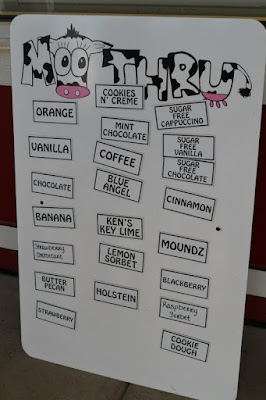 MOO THRU
ORANGE
VANILLA
CHOCOLATE
BANANA
Strawberry
Cheesecake
BUTTER
PECAN
STRAWBERRY
COOKIES
N' CREME
MINT
CHOCOLATE
COFFEE
BLUE
ANGEL
KEN'S
KEY LIME
LEMON
SORBET
HOLSTEIN
SUGAR
FREE
CAPPUCCINO
SUGAR
FREE
VANILLA
SUGAR
FREE
CHOCOLATE
CINNAMON
MOUNDZ
BLACKBERRY
Raspberry
Sorbet
COOKIE
DOUGH